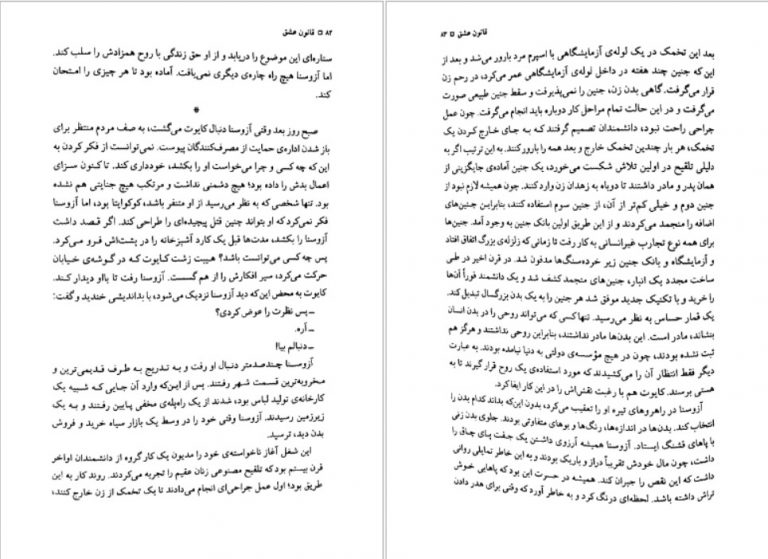 ۸۲ □ قانون عشق
ستاره‌ای این موضوع را دریابد و از او حق زندگی با روح همزادش را سلب کند.
اما آزوسنا هیچ راه چاره‌ی دیگری نمی‌یافت. آماده بود تا هر چیزی را امتحان
کند.
*
صبح روز بعد وقتی آزوسنا دنبال کایوت می‌گشت، به صف مردم منتظر برای
باز شدن اداره‌ی حمایت از مصرف‌کنندگان پیوست. نمی‌توانست از فکر کردن به
این که چه کسی و چرا می‌خواست او را بکشد، خودداری کند. تا کنون سزای
اعمال بدش را داده بود؛ هیچ دشمنی نداشت و مرتکب هیچ جنایتی هم نشده
بود. تنها شخصی که به نظر می‌رسید از او متنفر باشد، کوکوایتا بود، اما آزوسنا
فکر نمی‌کرد که او بتواند چنین قتل پیچیده‌ای را طراحی کند. اگر قصد داشت
آزوسنا را بکشد، مدت‌ها قبل یک کارد آشپزخانه را در پشت‌اش فرو می‌کرد.
پس چه کسی می‌توانست باشد؟ هیبت زشت کایوت که در گوشه‌ی خیابان
حرکت می‌کرد، سیر افکارش را از هم گسست. آزوسنا رفت تا بااو دیدار کند.
کایوت به محض این‌که دید آزوسنا نزدیک می‌شود، با بداندیشی خندید و گفت:
ــ پس نظرت را عوض کردی؟
ــ آره.
ــ دنبالم بیا!
آزوسنا چندصدمتر دنبال او رفت و به تدریج به طرف قدیمی‌ترین و
مخروبه‌ترین قسمت شهر رفتند. پس از این‌که وارد آن جایی که شبیه یک
کارخانه‌ی تولید لباس بود، شدند از یک راه‌پله‌ی مخفی پایین رفتند و به یک
زیرزمین رسیدند. آزوسنا وقتی خود را در وسط یک بازار سیاه خرید و فروش
بدن دید، ترسید.
این شغل آغاز ناخواسته‌ی خود را مدیون یک کار گروه از دانشمندان اواخر
قرن بیستم بود که تلقیح مصنوعی زنان عقیم را تجربه می‌کردند. روند کار به این
طریق بود؛ اول عمل جراحی‌ای انجام می‌دادند تا یک تخمک از زن خارج کنند،
قانون عشق □ ۸۳
بعد این تخمک در یک لوله‌ی آزمایشگاهی با اسپرم مرد بارور می‌شد و بعد از
این که جنین چند هفته در داخل لوله‌ی آزمایشگاهی عمر می‌کرد، در رحم زن
قرار می‌گرفت. گاهی بدن زن، جنین را نمی‌پذیرفت و سقط جنین طبیعی صورت
می‌گرفت و در این حالت تمام مراحل کار دوباره باید انجام می‌گرفت. چون عمل
جراحی راحت نبود، دانشمندان تصمیم گرفتند که به جای خارج کردن یک
تخمک، هر بار چندین تخمک خارج و بعد همه را بارور کنند. به این ترتیب اگر به
دلیلی تلقیح در اولین تلاش شکست می‌خورد، یک جنین آماده‌ی جایگزینی از
همان پدر و مادر داشتند تا دوباره به زهدان زن وارد کنند. چون همیشه لازم نبود از
جنین دوم و خیلی کم‌تر از آن، از جنین سوم استفاده کنند، بنابراین جنین‌های
اضافه را منجمد می‌کردند و از این طریق اولین بانک جنین به وجود آمد. جنین‌ها
برای همه نوع تجارب غیرانسانی به کار رفت تا زمانی که زلزله‌ی بزرگ اتفاق افتاد
و آزمایشگاه و بانک جنین زیر خرده‌سنگ‌ها مدفون شد. در قرن اخیر در طی
ساخت مجدد یک انبار، جنین‌های منجمد کشف شد و یک دانشمند فوراً آن‌ها
را خرید و با تکنیک جدید موفق شد هر جنین را به یک بدن بزرگسال تبدیل کند.
یک قمار حساس به نظر می‌رسید. تنها کسی که می‌تواند روحی را در بدن انسان
بنشاند، مادر است. این بدن‌ها مادر نداشتند، بنابراین روحی نداشتند و هرگز هم
ثبت نشده بودند، چون در هیچ مؤسسه‌ی دولتی به دنیا نیامده بودند. به عبارت
دیگر فقط انتظار آن را می‌کشیدند که مورد استفاده‌ی یک روح قرار گیرند تا به
هستی برسند. کایوت هم با رغبت نقش‌اش را در این کار ایفا کرد.
آزوسنا در راهروهای تیره او را تعقیب می‌کرد، بدون این‌که بداند کدام بدن را
انتخاب کند. بدن‌ها در اندازه‌ها، رنگ‌ها و بوهای متفاوتی بودند. جلوی بدن زنی
با پاهای قشنگ ایستاد. آزوسنا همیشه آرزوی داشتن یک جفت پای چاق را
داشت، چون مال خودش تقریباً دراز و باریک بودند و به این خاطر تمایلی روانی
داشت که این نقص را جبران کند. همیشه در حسرت این بود که پاهایی خوش
تراش داشته باشد. لحظه‌ای درنگ کرد و به خاطر آورد که وقتی برای هدر دادن